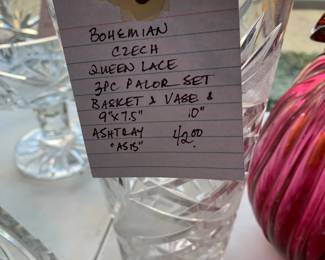 BOHEMIAN
CZECH
QUEEN LACE
3PC PALOR SET
BASKET & VASE &
9"X7.5" 10"
ASHTRAY 42.00
"ASIS"